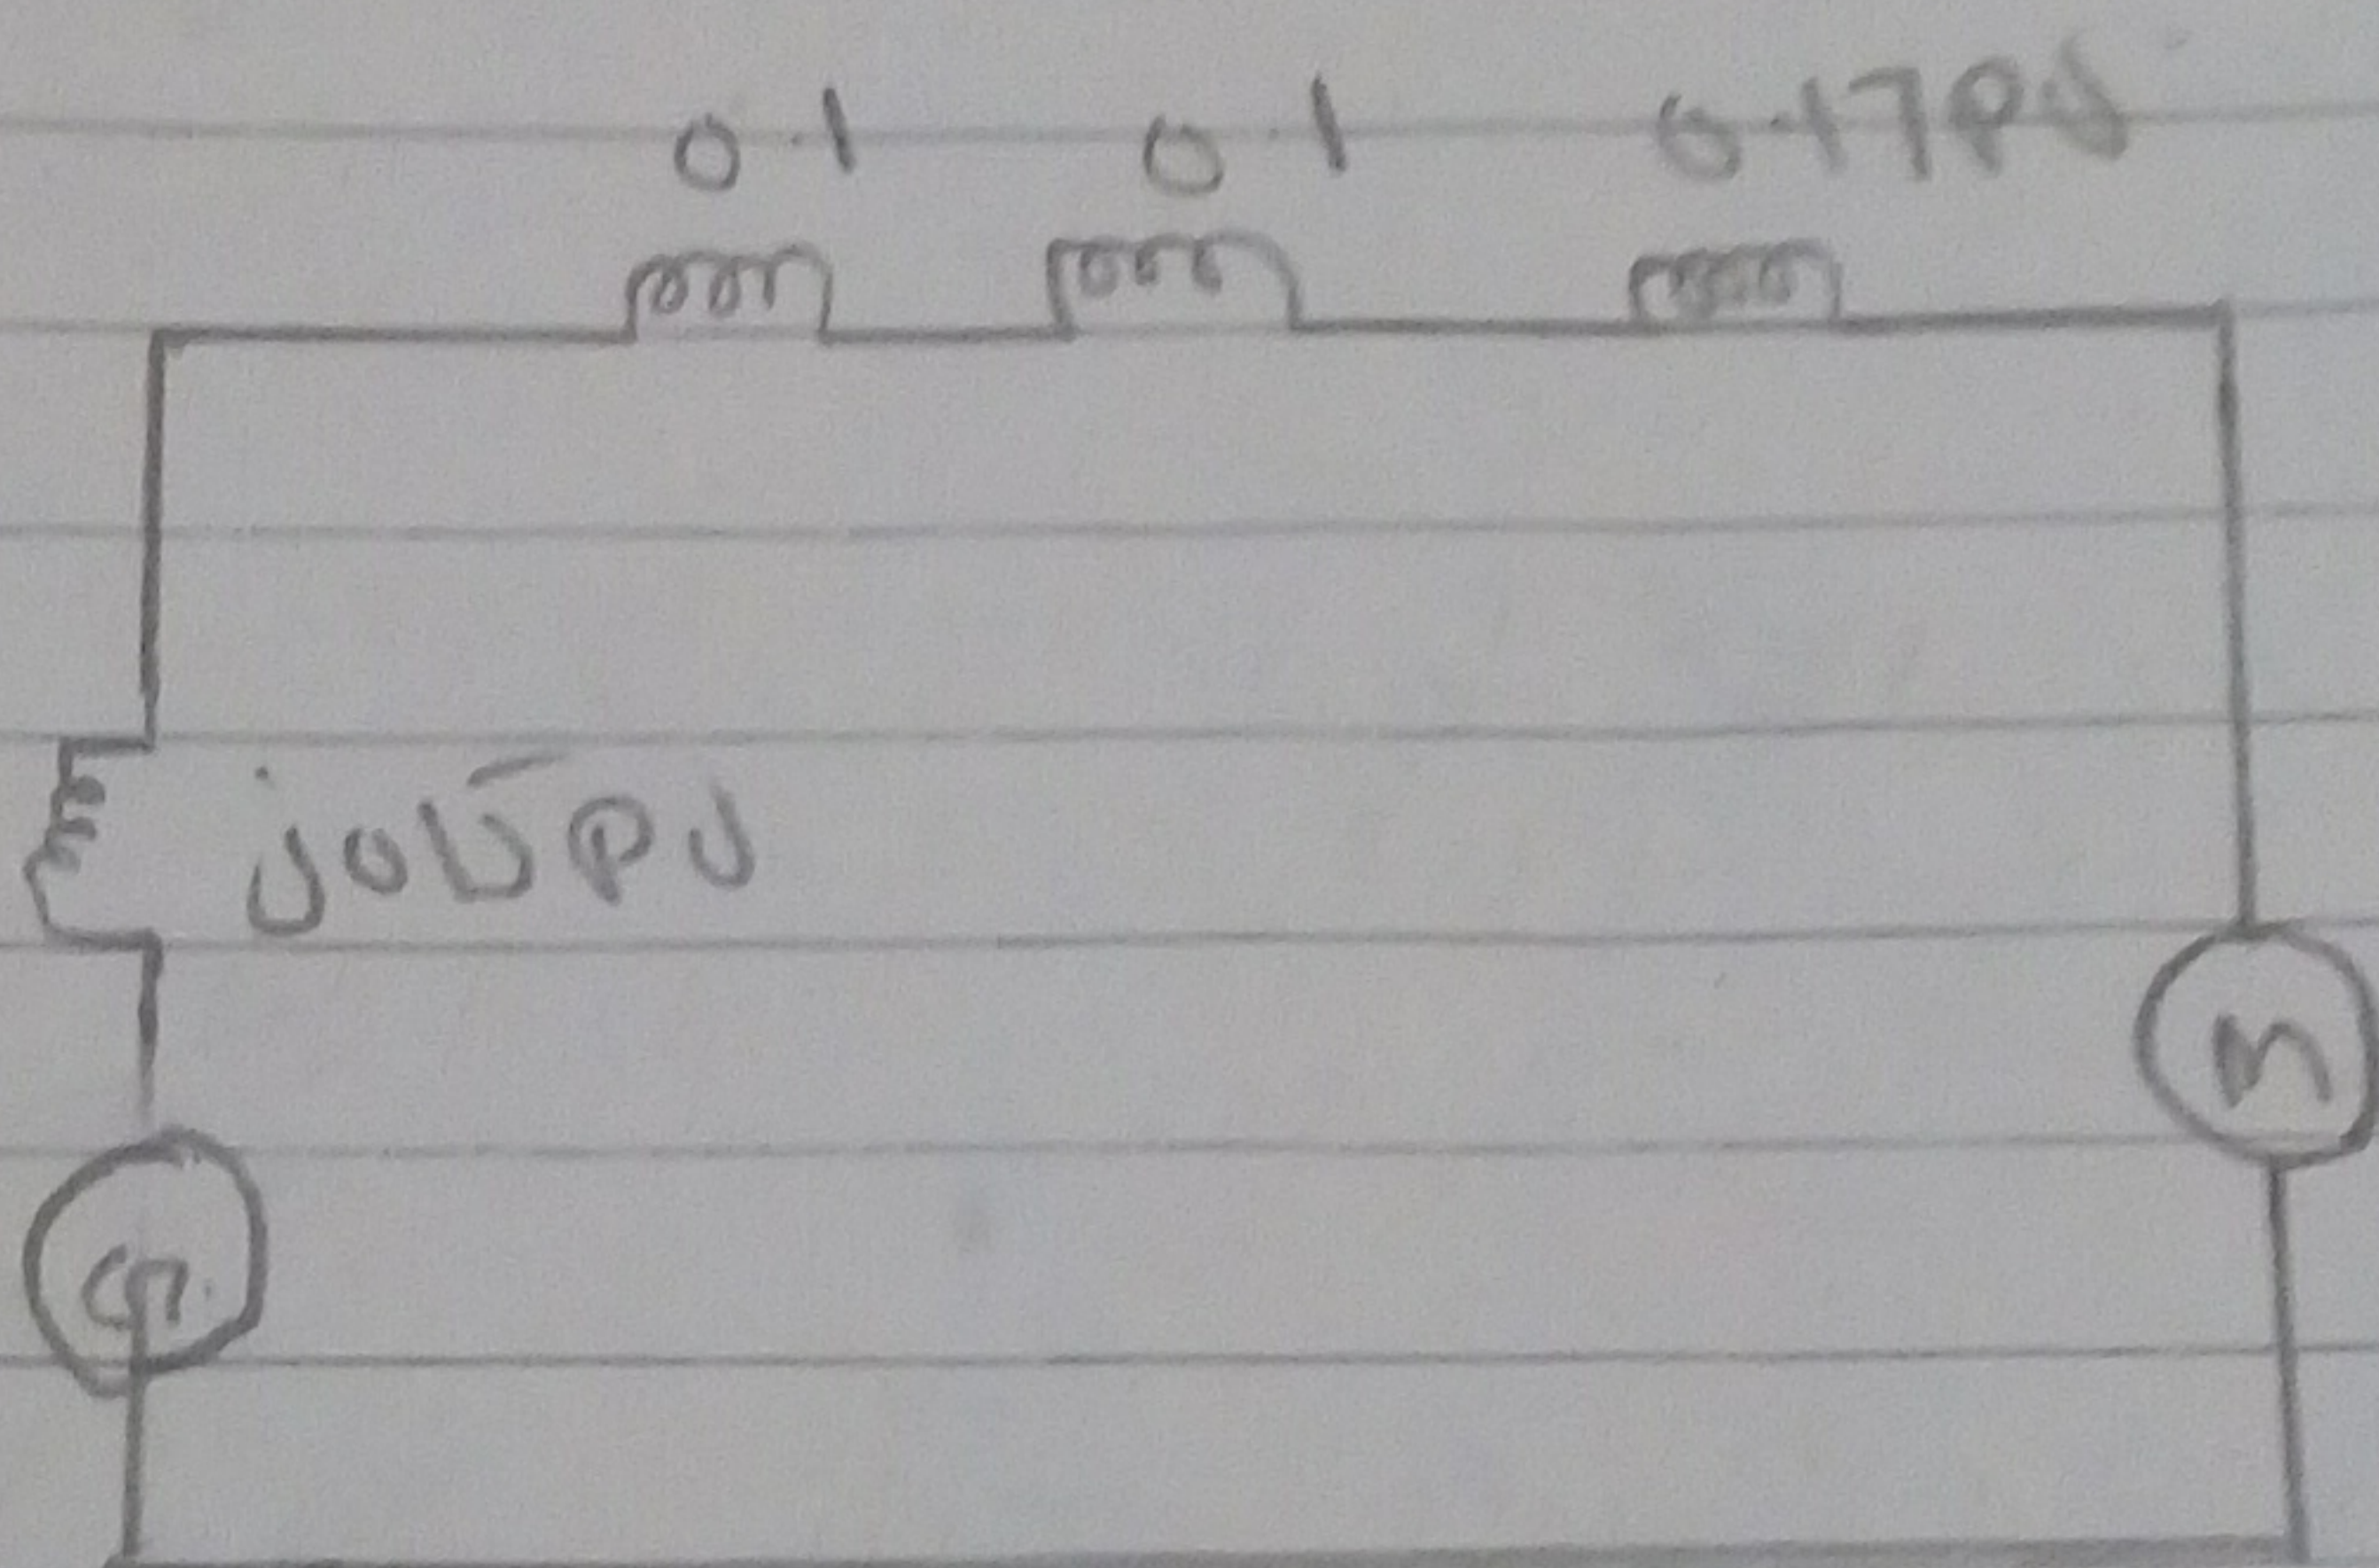 0.1 0.1 0.17PU
j015PU
M
G